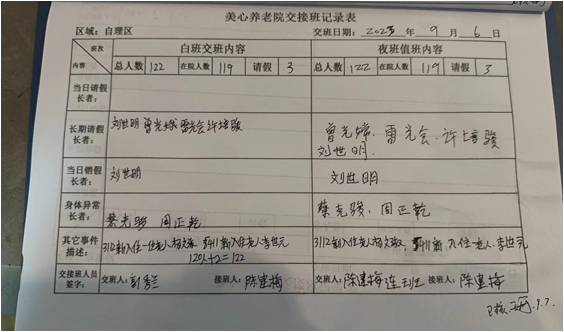 美心养老院交接班记录表
区域：自理区 交班日期：2023 年 9 月 6 日
班次 内容 白班交班内容 夜班值班内容
总人数 122 在院人数 119 请假 3 总人数 122 在院人数 119 请假 3
当日请假长者：
长期请假长者： 刘世明 曾光 雷光会 许培骏 曾光 雷光会 许培骏
刘世明
当日销假长者： 刘世明 刘世明
身体异常长者： 蔡克骏 周正乾 蔡克骏 周正乾
其它事件描述： 312新入住一位老人 新入住老人李世元 312新入住一位老人 新入住一老人李世元
120人+2=122
交接班人员签字： 交班人： 接班人：陈建梅 交班人：陈建梅 接班人：陈建梅
已核 9.7.